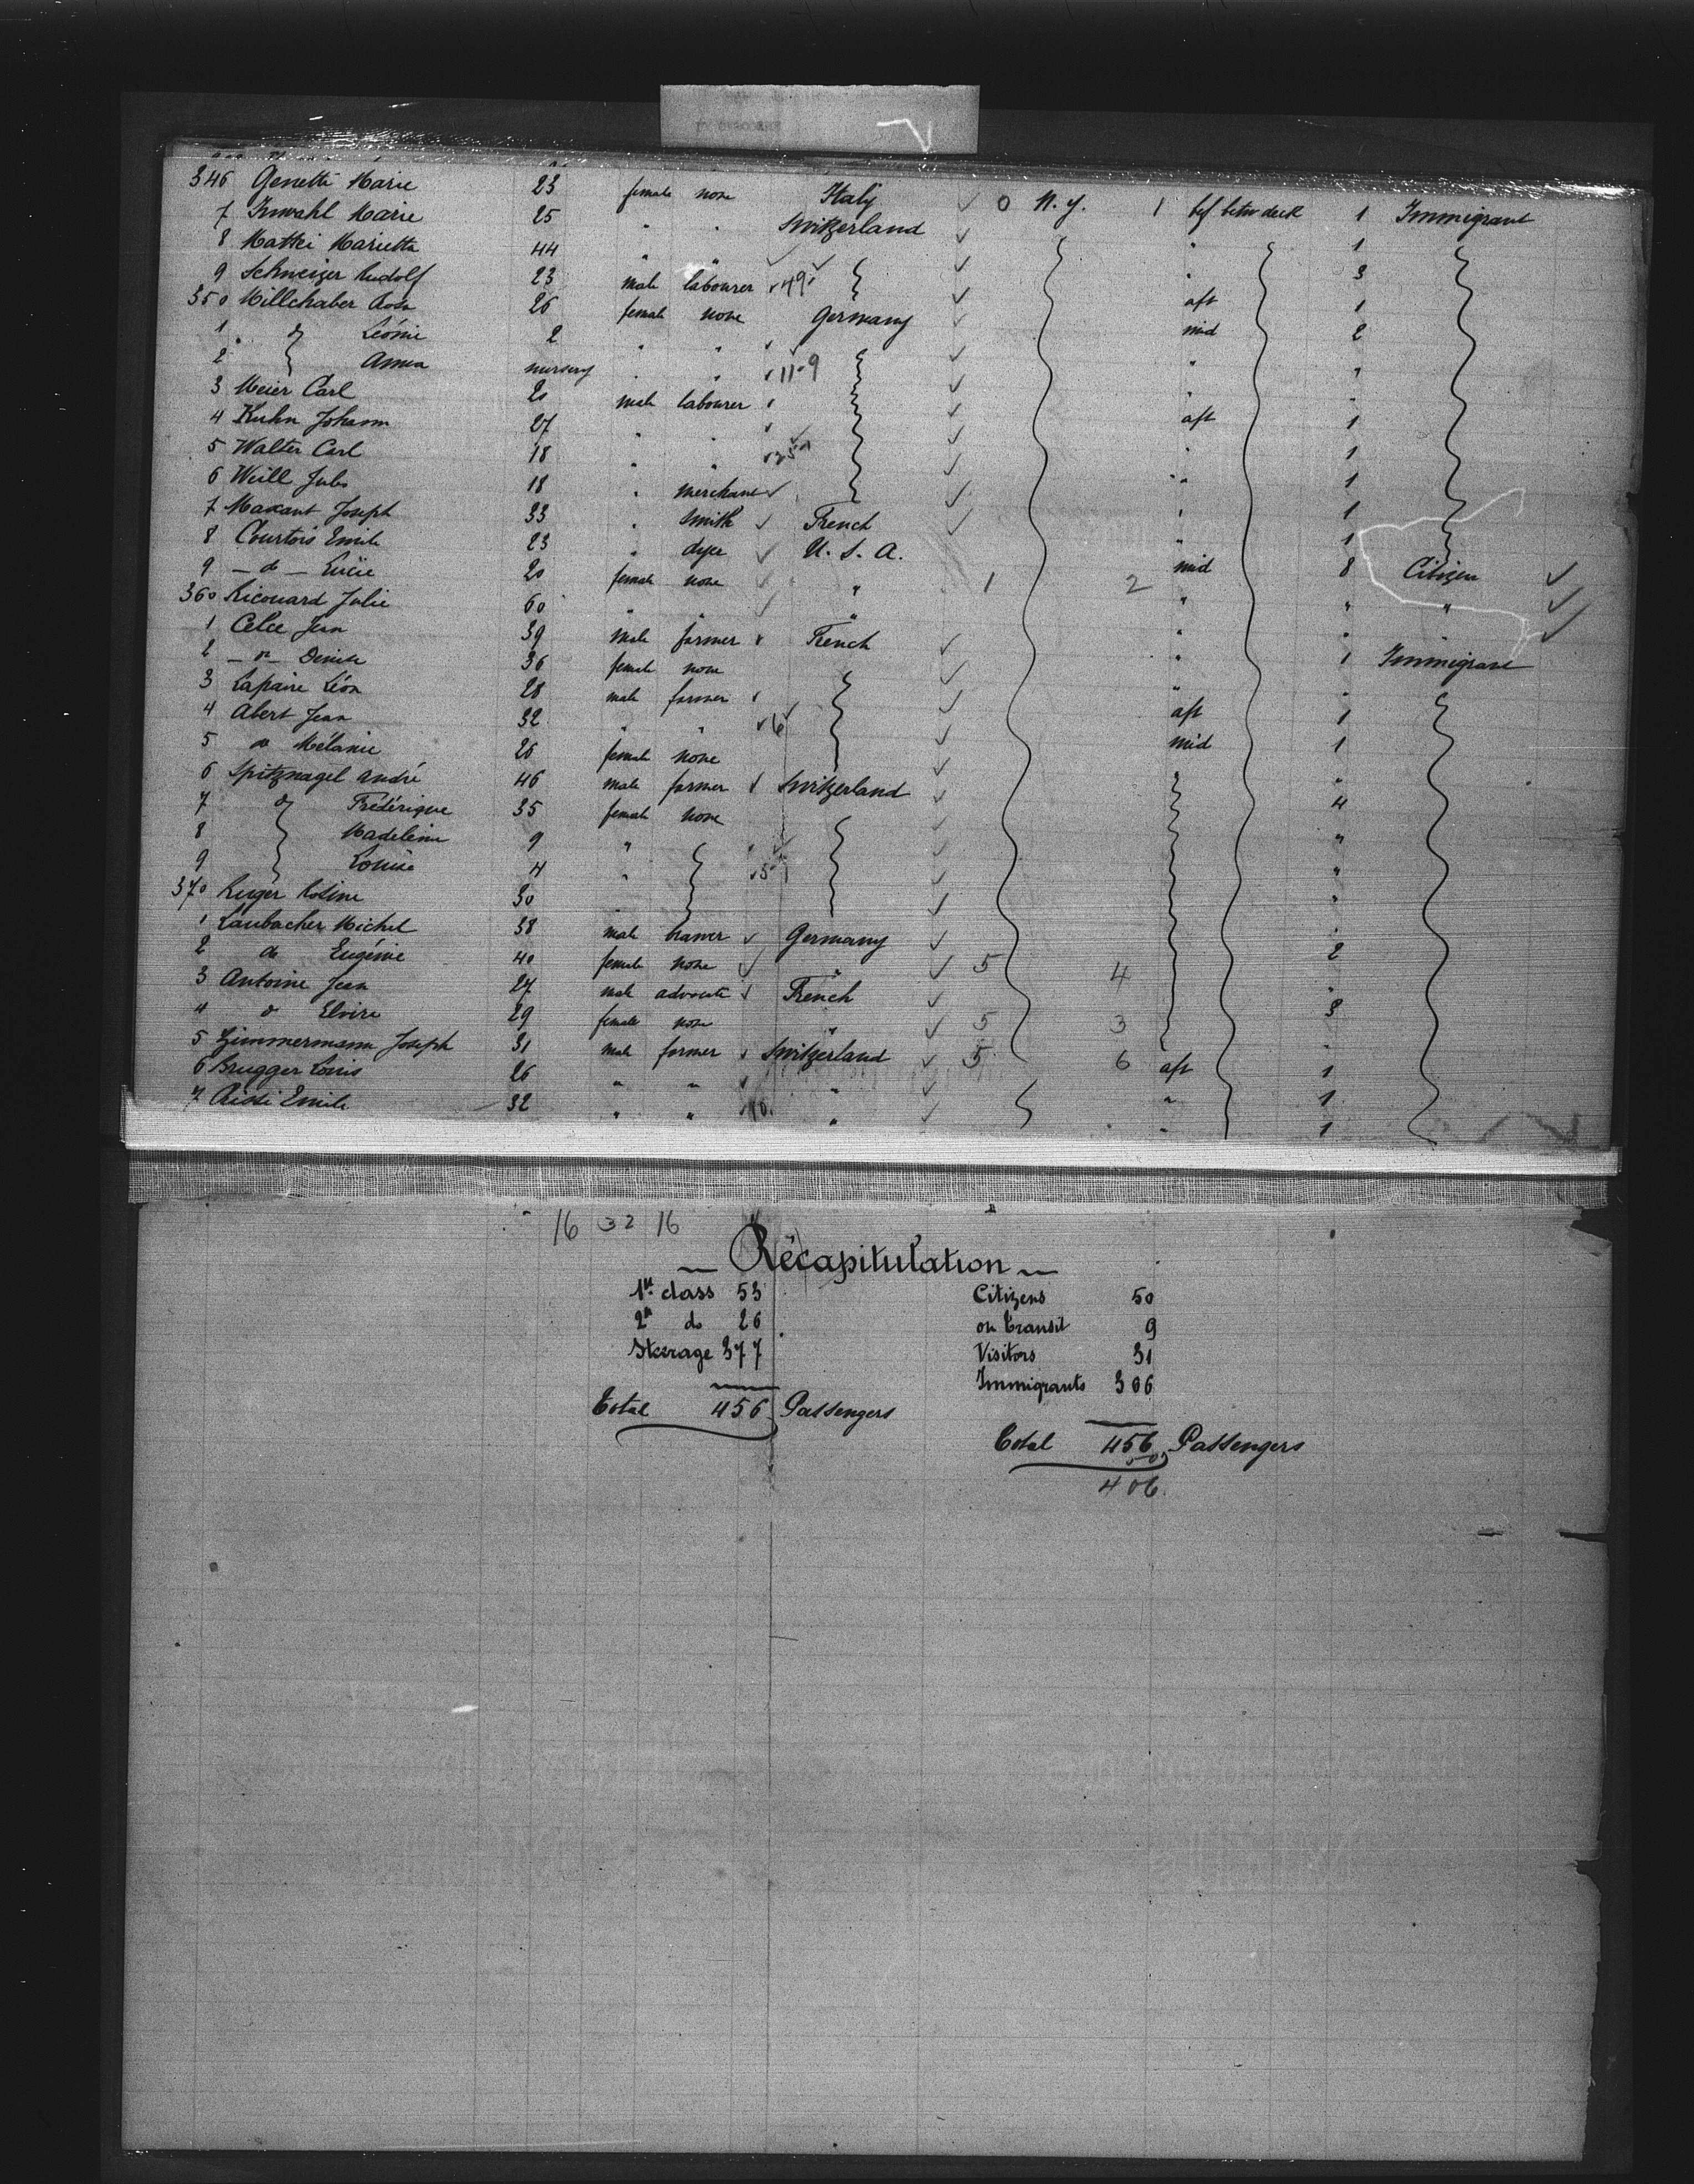 346 Genetti Marie 23 female none Italy 0 N. Y. 1 bef betw deck 1 Immigrant
7 Marie 25 " " Switzerland " 1
8 Mattei Marietta 44 " " " 3
9 Schweizer Rudolf 23 male labourer 49 aft 1
350 Millchaber Rosa 26 female none Germany mid 2
1 do Léonie 2 " " " "
2 Anna nursery " " 11-9 " "
3 Meier Carl 20 male labourer aft 1
4 Kuhn Johann 27 " " " 1
5 Walter Carl 18 " " 25 " 1
6 Weill Jules 18 " merchant " 1
7 Makant Joseph 33 " smith French " 1
8 Courtois Emile 23 " dyer U. S. A. mid 8 Citizen
9 - do - Lucie 20 female none " 1 2 " " "
360 Ricouard Julie 60 " " " " " "
1 Celce Jean 39 male farmer French " 1 Immigrant
2 - do - Denise 36 female none " "
3 Lapaire Léon 28 male farmer aft 1
4 Abert Jean 32 " " 6 mid 1
5 do Mélanie 26 female none "
6 Spitznagel André 46 male farmer Switzerland 4
7 do Frédérique 35 female none "
8 Madeleine 9 " "
9 Louise 4 " 5 "
370 Ruger Rosine 30 " "
1 Laubacher Michel 38 male Germany 2
2 do Eugénie 40 female none " 5 4 "
3 Antoine Jean 27 male advocate French 3
4 do Elvire 29 female none " 5 3 "
5 Zimmermann Joseph 31 male farmer Switzerland 5 6 aft 1
6 Brugger Louis 26 " " " " 1
7 Emile 32 " " 10 " " 1
16 32 16
Récapitulation
1st class 53 Citizens 50
2d do 26 on transit 9
Steerage 377 Visitors 31
Immigrants 306
Total 456 Passengers
Total 456 Passengers
50
406